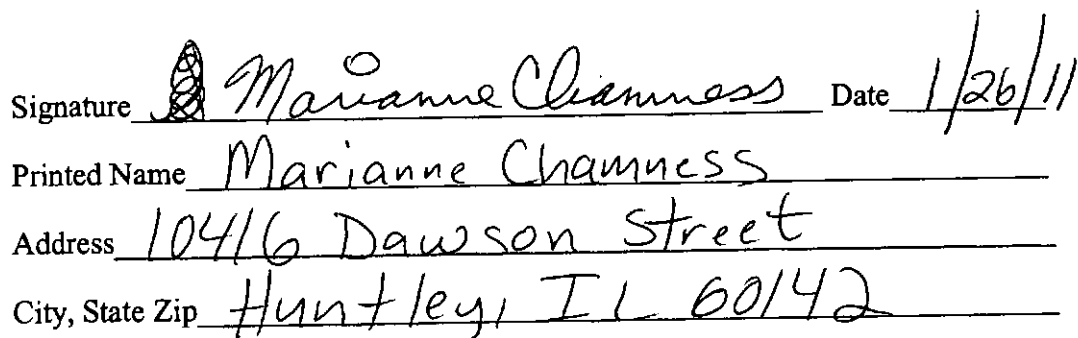 Signature Marianne Chamness Date 1/26/11
Printed Name Marianne Chamness
Address 10416 Dawson Street
City, State Zip Huntley, IL 60142